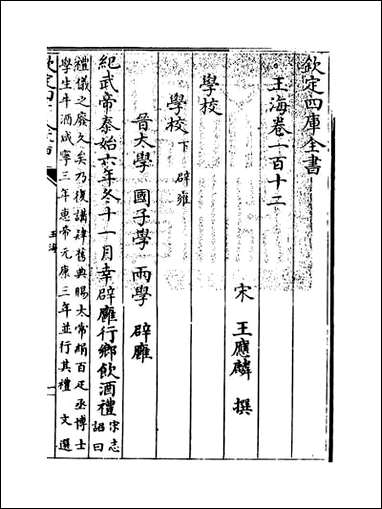 欽定四庫全書
玉海卷一百十二
宋 王應麟 撰
學校
學校下 辟雍
晉太學 國子學 兩學 辟雝
紀武帝泰始六年冬十一月幸辟雝行鄉飲酒禮宋志詔曰
禮儀之廢久矣乃復講肄舊典賜太常絹百疋丞博士
學生牛酒咸寧三年惠帝元康三年並行其禮 文選
玉海